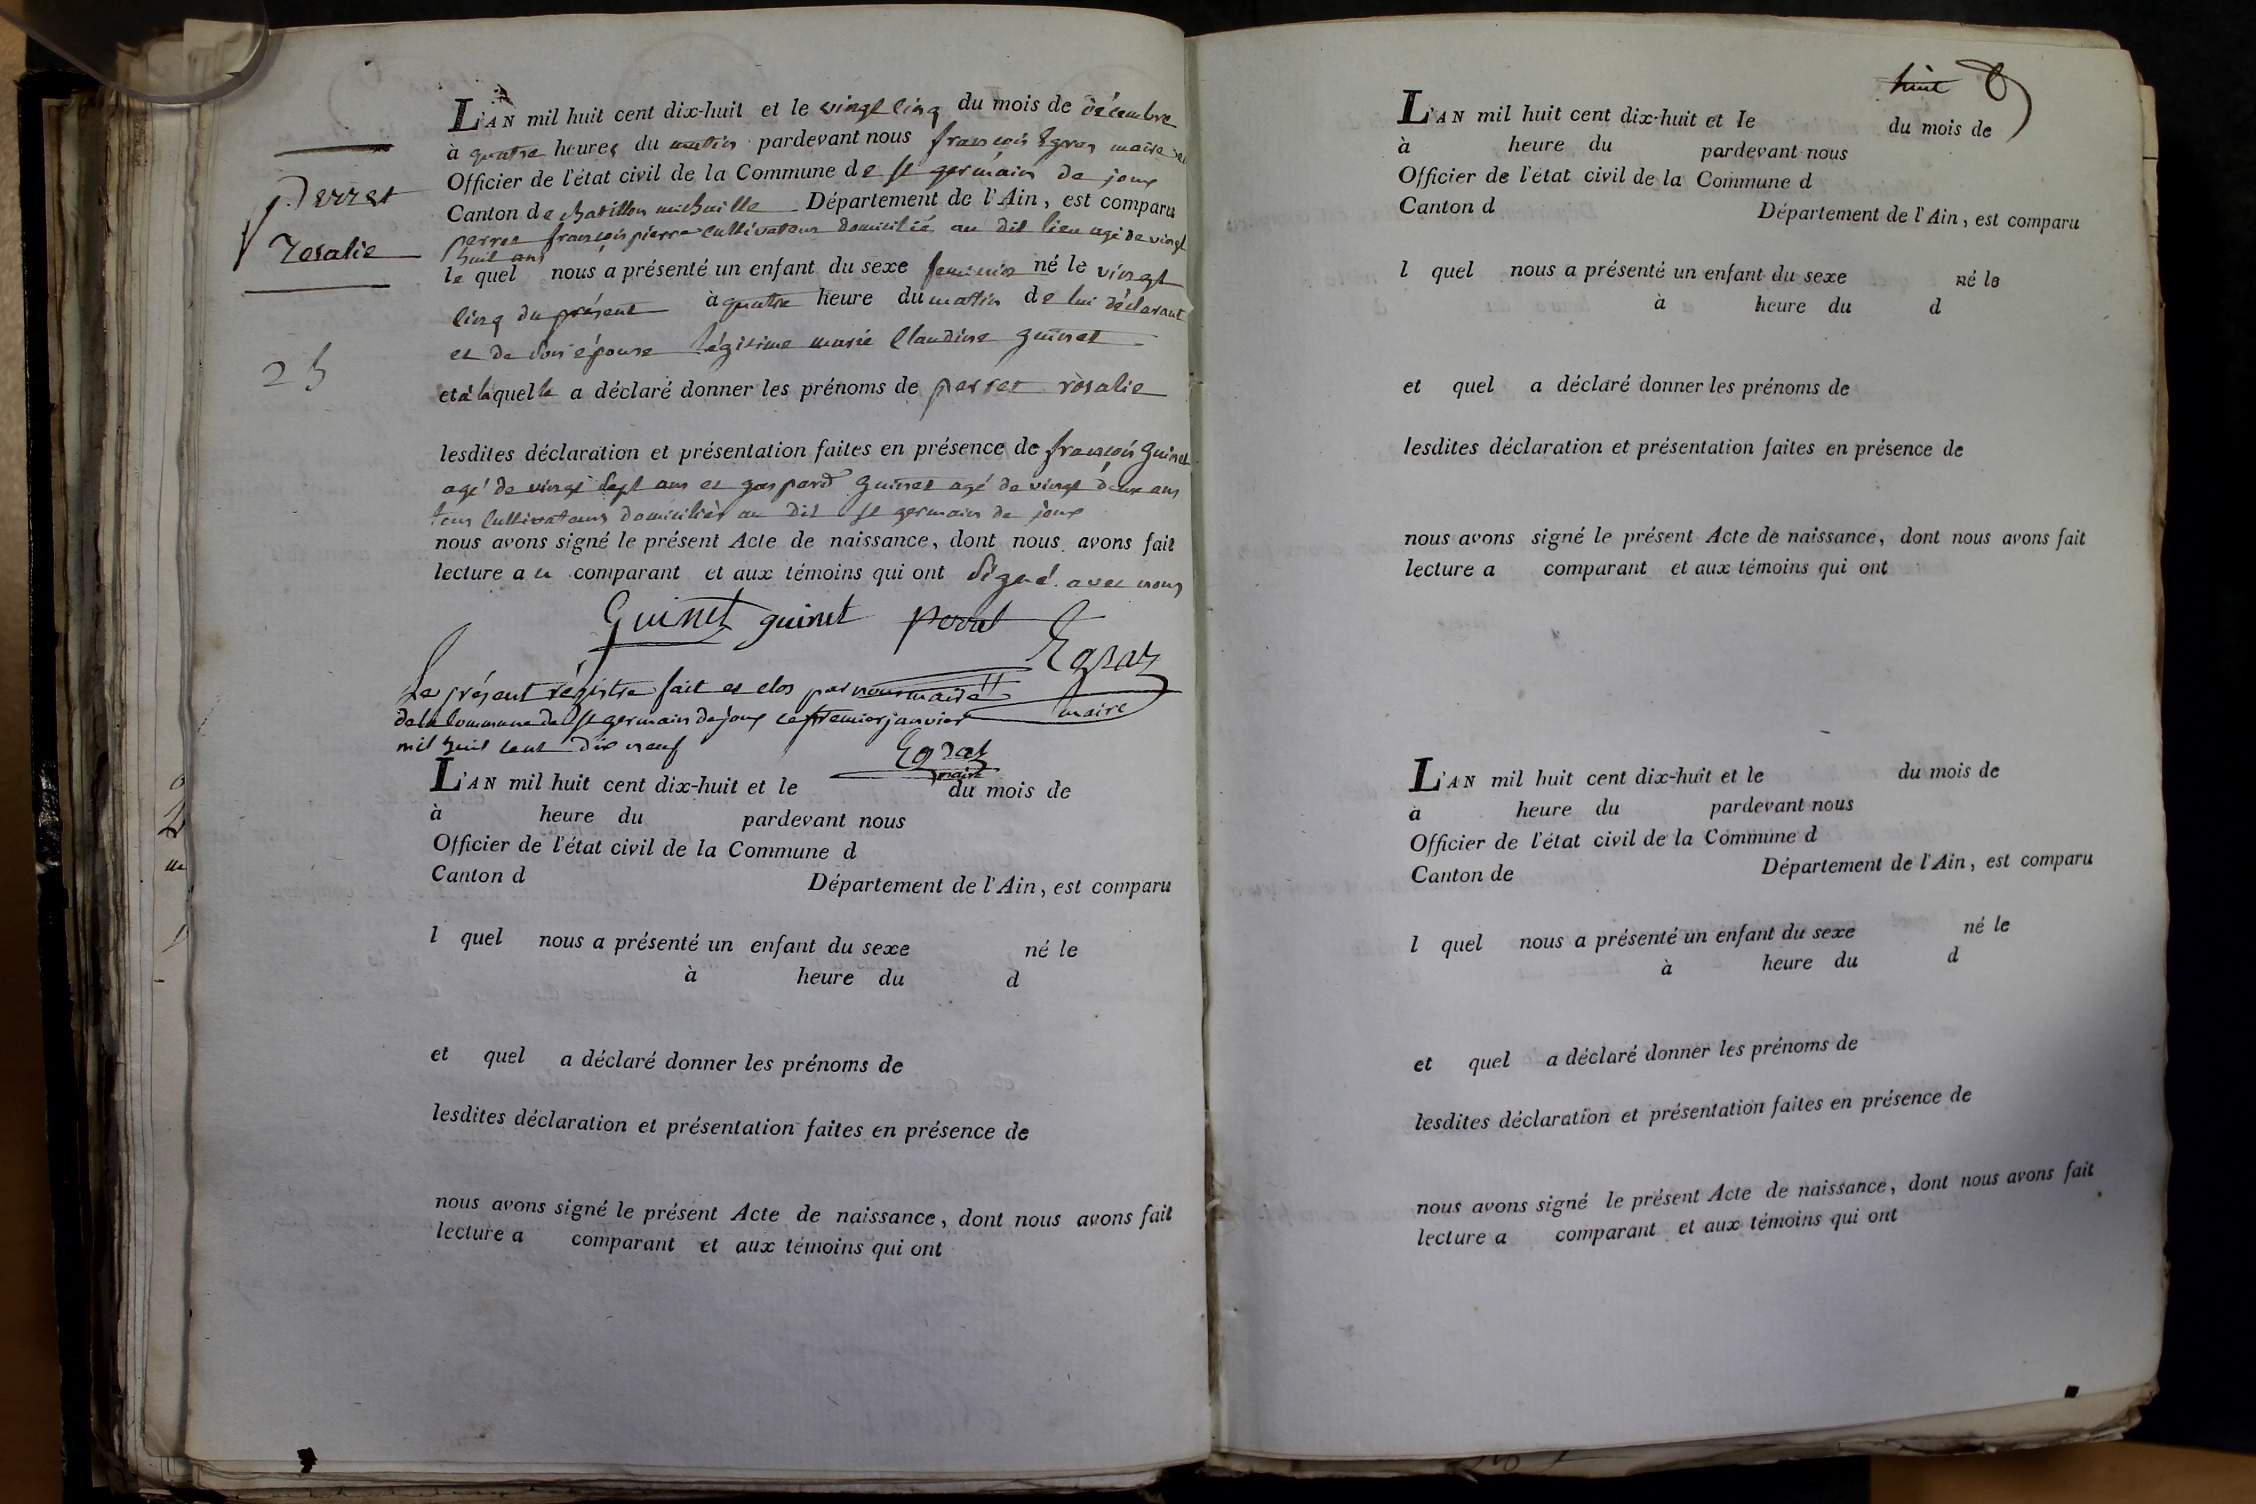 Perret
rosalie
25
L'AN mil huit cent dix-huit et le vingt cinq du mois de décembre
à quatre heures du matin pardevant nous françois Egraz maire et
Officier de l'état civil de la Commune de st germain de joux
Canton de chatillon michaille Département de l'Ain, est comparu
perret françois pierre cultivateur domicilié au dit lieu agé de vingt
huit ans
le quel nous a présenté un enfant du sexe feminin né le vingt
cinq du présent à quatre heure du matin de lui déclarant
et de son épouse légitime marie Claudine guinet
et à laquelle a déclaré donner les prénoms de perret rosalie
lesdites déclaration et présentation faites en présence de françois guinet
agé de vingt sept ans et gaspard guinet agé de vingt deux ans
tous cultivateurs domiciliés au dit st germain de joux
nous avons signé le présent Acte de naissance, dont nous avons fait
lecture au comparant et aux témoins qui ont signé avec nous
Guinet guinet perret
Egraz
maire
Le présent régistre fait et clos par nous maire
de la Commune de st germain de joux ce premier janvier
mil huit cent dix neuf
Egraz
maire
L'AN mil huit cent dix-huit et le du mois de
à heure du pardevant nous
Officier de l'état civil de la Commune d
Canton d Département de l'Ain, est comparu
l quel nous a présenté un enfant du sexe né le
à heure du d
et quel a déclaré donner les prénoms de
lesdites déclaration et présentation faites en présence de
nous avons signé le présent Acte de naissance, dont nous avons fait
lecture a comparant et aux témoins qui ont
huit 8
L'AN mil huit cent dix-huit et le du mois de
à heure du pardevant nous
Officier de l'état civil de la Commune d
Canton d Département de l'Ain, est comparu
l quel nous a présenté un enfant du sexe né le
à heure du d
et quel a déclaré donner les prénoms de
lesdites déclaration et présentation faites en présence de
nous avons signé le présent Acte de naissance, dont nous avons fait
lecture a comparant et aux témoins qui ont
L'AN mil huit cent dix-huit et le du mois de
à heure du pardevant nous
Officier de l'état civil de la Commune d
Canton de Département de l'Ain, est comparu
l quel nous a présenté un enfant du sexe né le
à heure du d
et quel a déclaré donner les prénoms de
lesdites déclaration et présentation faites en présence de
nous avons signé le présent Acte de naissance, dont nous avons fait
lecture a comparant et aux témoins qui ont